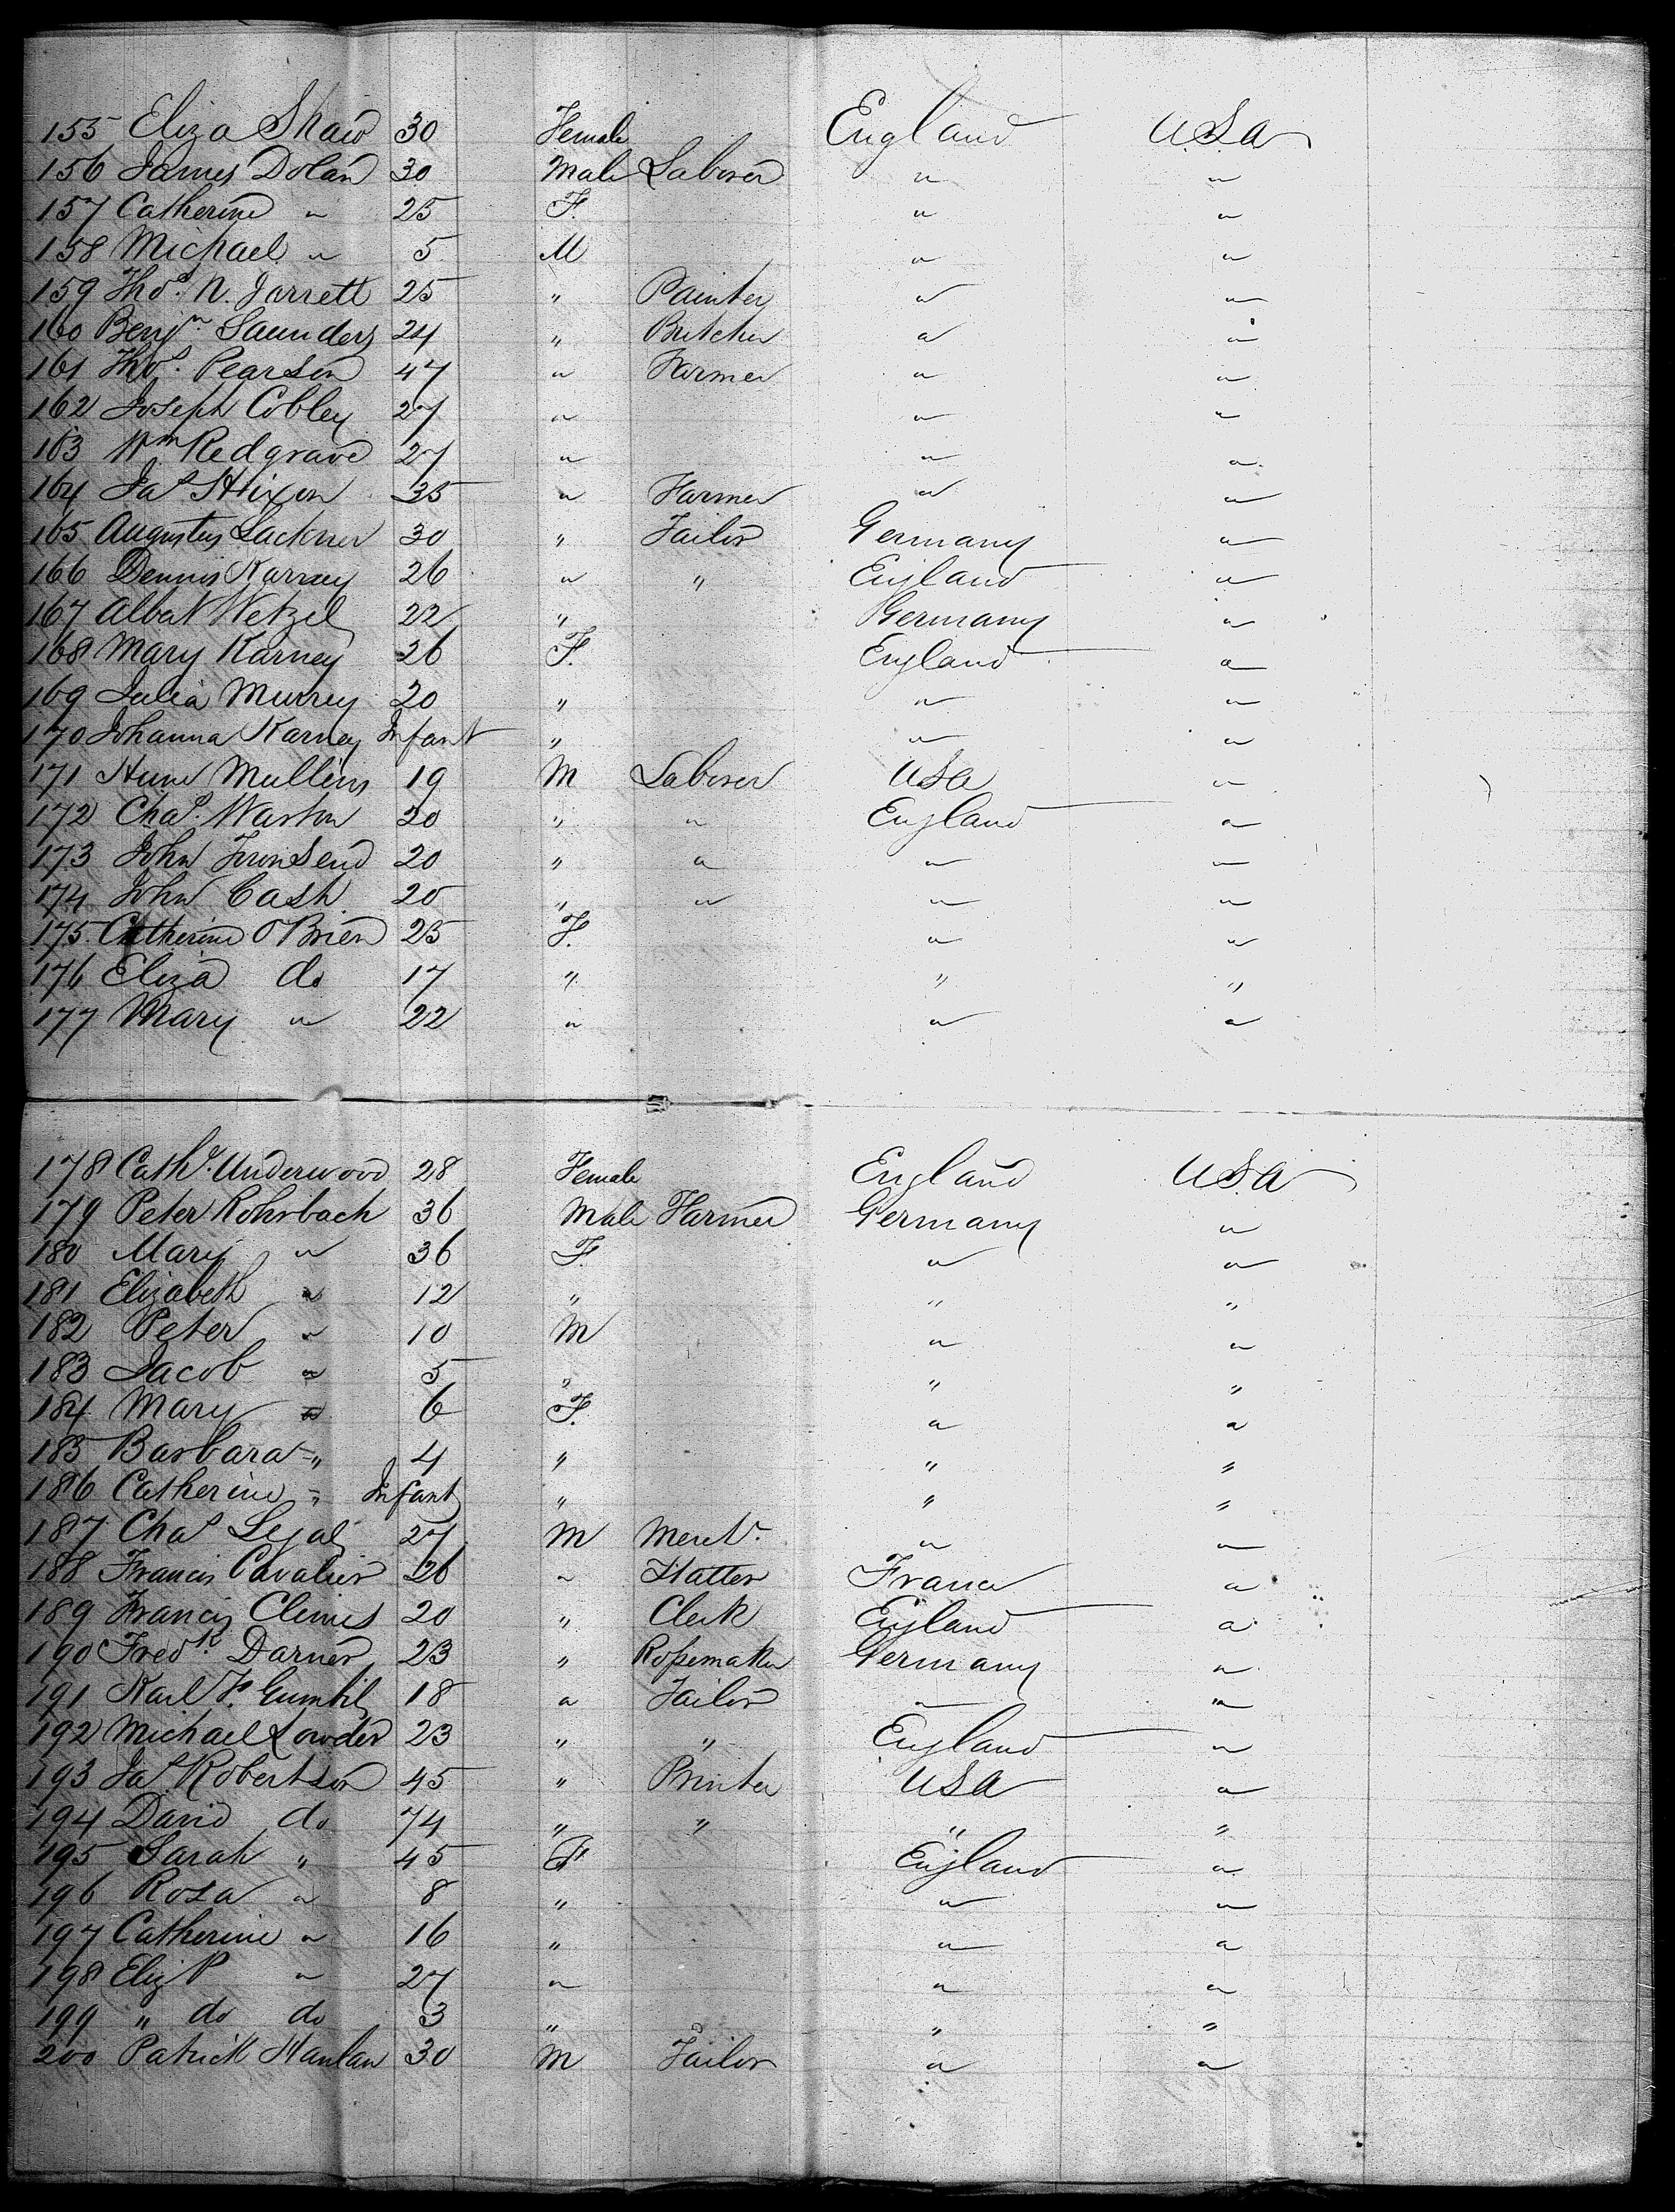 155 Eliza Shaw 30 Female England U.S.A
156 James Dolan 30 Male Laborer " "
157 Catherine " 25 F. " "
158 Michael " 5 M " "
159 Thos. N. Jarrett 25 " Painter " "
160 Benjn. Saunders 24 " Butcher " "
161 Thos. Pearson 47 " Farmer " "
162 Joseph Cobley 27 " " "
163 Wm Redgrave 27 " " "
164 Jas Hixon 35 " Farmer " "
165 Augustus Lackner 30 " Tailor Germany "
166 Dennis Karney 26 " " England "
167 Albat Wetzel 22 " Germany "
168 Mary Karney 26 F. England "
169 Julia Murrey 20 " " "
170 Johanna Karney Infant " " "
171 Mullins 19 M Laborer USA "
172 Chas. Warton 20 " " England "
173 John Townsend 20 " " " "
174 John Cash 20 " " " "
175. Catherine O'Brien 25 F. " "
176 Eliza do 17 " " "
177 Mary " 22 " " "
178 Cathe. Underwood 28 Female England U.S.A
179 Peter Rohrbach 36 Male Farmer Germany "
180 Mary " 36 F. " "
181 Elizabeth " 12 " " "
182 Peter " 10 M " "
183 Jacob " 5 " " "
184 Mary " 6 F. " "
185 Barbara " 4 " " "
186 Catherine " Infant " " "
187 Chas 27 M Mercht. " "
188 Francis Cavalier 26 " Hatter France "
189 Francis 20 " Clerk England "
190 Fredk. Darner 23 " Ropemaker Germany "
191 Karl F. 18 " Tailor " "
192 Michael Lowder 23 " " England "
193 Jas Robertson 45 " Printer USA "
194 David do 74 " " " "
195 Sarah " 45 F England "
196 Rosa " 8 " " "
197 Catherine " 16 " " "
198 Eliz P " 27 " " "
199 " do do 3 " " "
200 Patrick Hanlan 30 M Tailor " "